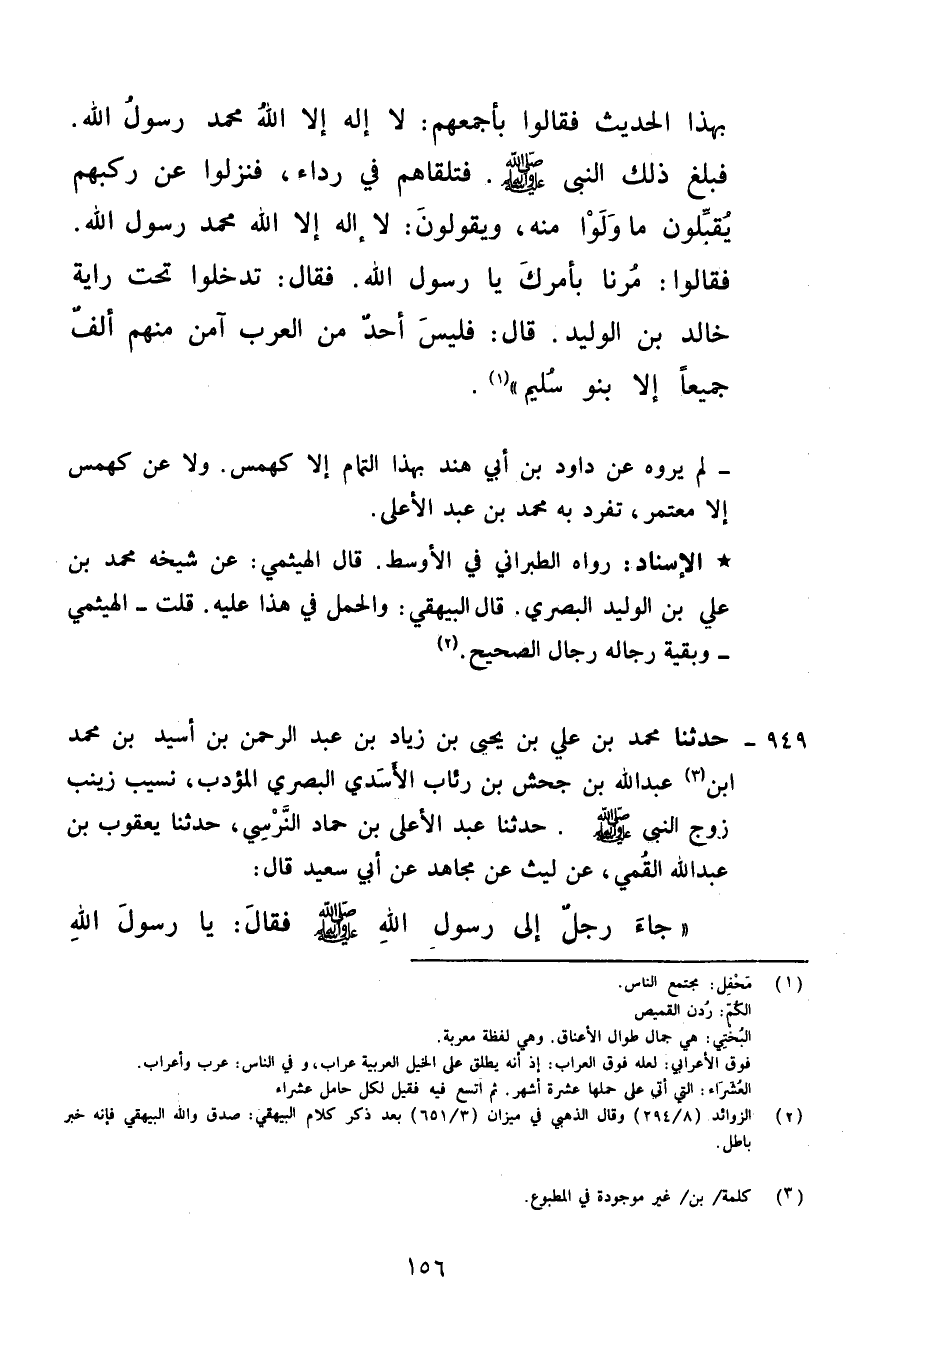 بهذا الحديث فقالوا بأجمعهم: لا إله إلا اللهُ محمد رسولُ الله.
فبلغ ذلك النبى ﷺ. فتلقاهم في رداء، فنزلوا عن ركبهم
يُقبِّلون ما وَلَوْا منه، ويقولونَ: لا إله إلا الله محمد رسول الله.
فقالوا: مُرنا بأمركَ يا رسول الله. فقال: تدخلوا تحت راية
خالد بن الوليد. قال: فليسَ أحدٌ من العرب آمن منهم ألفٌ
جميعاً إلا بنو سُليم»(١).
ـ لم يروه عن داود بن أبي هند بهذا التمام إلا كهمس. ولا عن كهمس
إلا معتمر، تفرد به محمد بن عبد الأعلى.
★ الإسناد: رواه الطبراني في الأوسط. قال الهيثمي: عن شيخه محمد بن
علي بن الوليد البصري. قال البيهقي: والحمل في هذا عليه. قلت ـ الهيثمي
ـ وبقية رجاله رجال الصحيح.(٢)
٩٤٩ ـ حدثنا محمد بن علي بن يحيى بن زياد بن عبد الرحمن بن أسيد بن محمد
ابن(٣) عبدالله بن جحش بن رئاب الأَسَدي البصري المؤدب، نسيب زينب
زوج النبي ﷺ . حدثنا عبد الأعلى بن حماد النَّرْسِي، حدثنا يعقوب بن
عبدالله القُمي، عن ليث عن مجاهد عن أبي سعيد قال:
«جاءَ رجلٌ إلى رسولِ اللهِ ﷺ فقالَ: يا رسولَ اللهِ
(١) مَحْفِل: مجتمع الناس.
الكُمّ: رُدن القميص
البُختِي: هي جمال طوال الأعناق. وهي لفظة معربة.
فوق الأعرابي: لعله فوق العراب: إذ أنه يطلق على الخيل العربية عراب، و في الناس: عرب وأعراب.
العُشَرَاء: التي أتي على حملها عشرة أشهر. ثم اتسع فيه فقيل لكل حامل عشراء
(٢) الزوائد (٢٩٤/٨) وقال الذهبي في ميزان (٦٥١/٣) بعد ذكر كلام البيهقي: صدق والله البيهقي فإنه خبر
باطل.
(٣) كلمة/ بن/ غير موجودة في المطبوع.
١٥٦